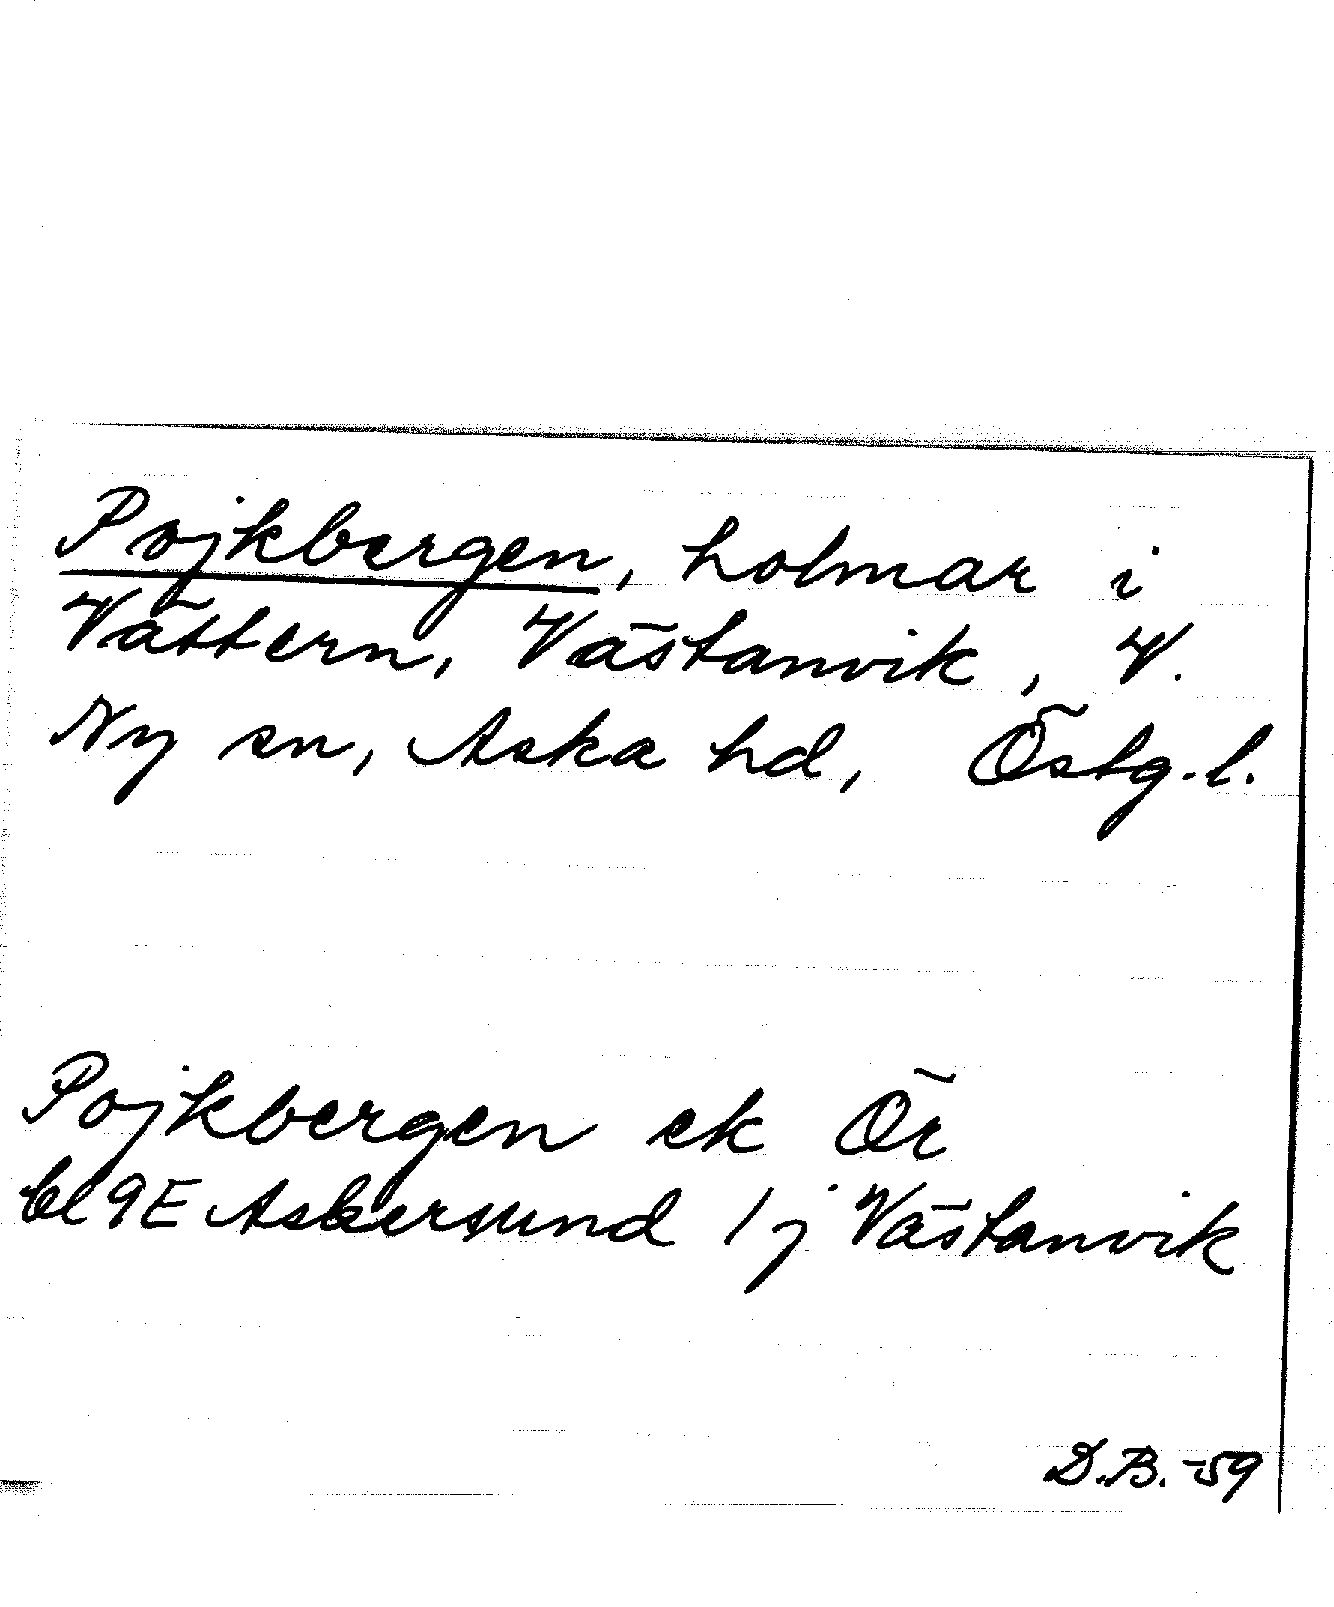 Pojkbergen, holmar i
Vättern, Västanvik, V.
Ny sn, Aska hd, Östg.l.
Pojkbergen ek Ör
bl 9E Askersund 1 j Västanvik
D.B. -59